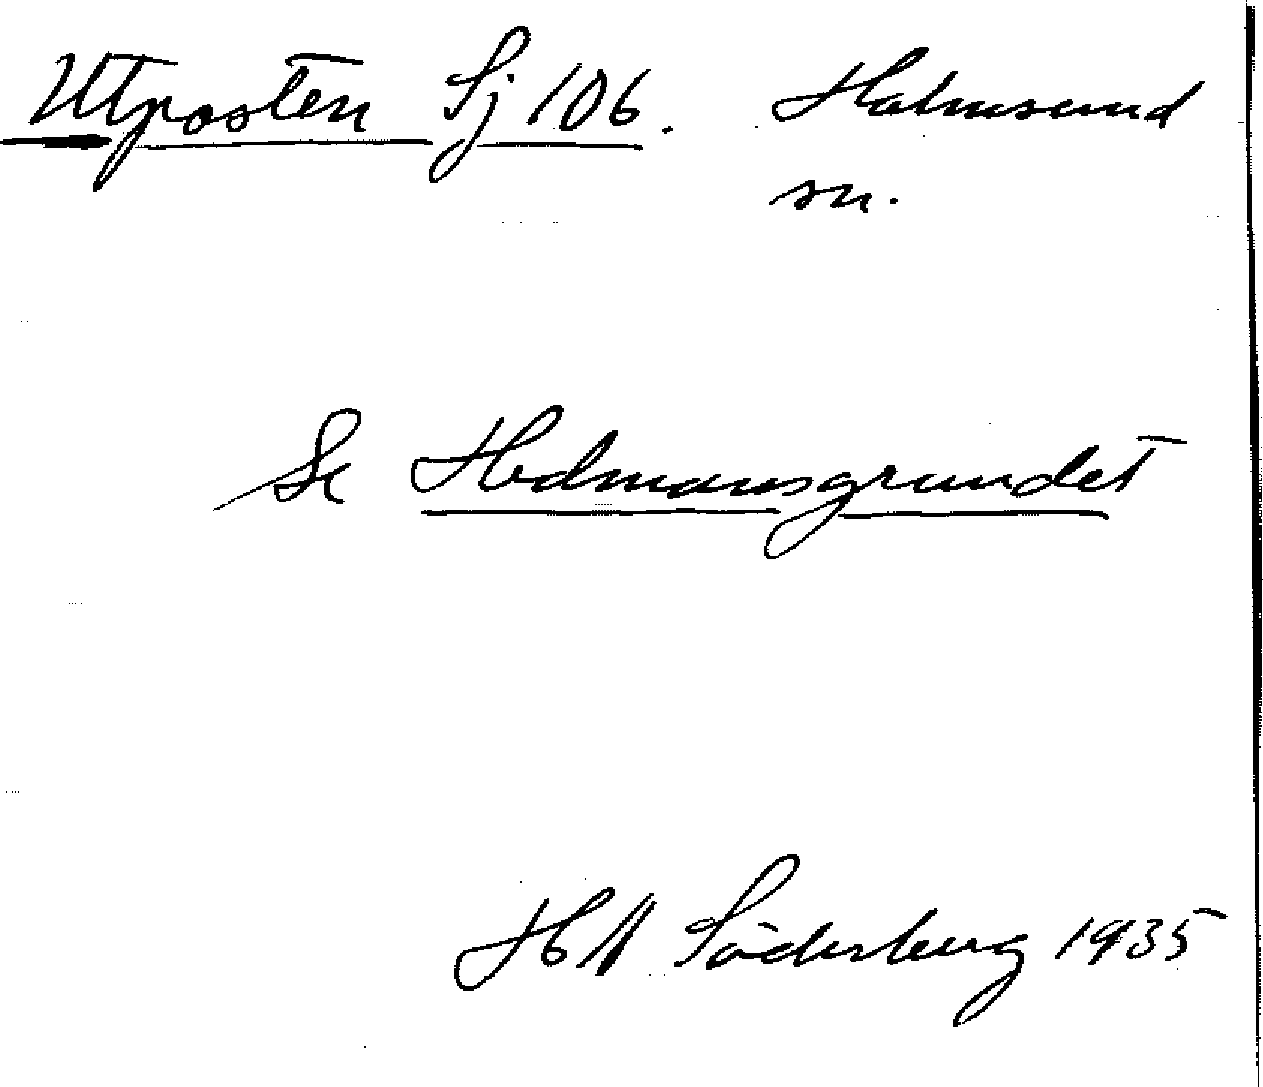 Utposten Sj 106. Holmsund
sn.
Se Hedmansgrundet
H Söderberg 1935